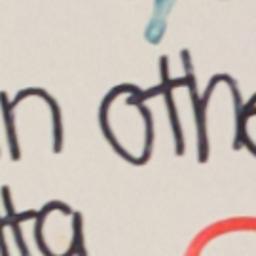 n othe
ta